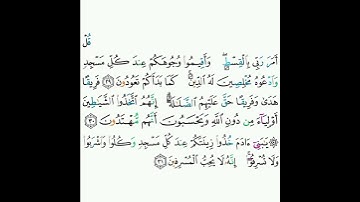 قُلۡ
أَمَرَ رَبِّي بِٱلۡقِسۡطِۖ وَأَقِيمُواْ وُجُوهَكُمۡ عِندَ كُلِّ مَسۡجِدٖ
وَٱدۡعُوهُ مُخۡلِصِينَ لَهُ ٱلدِّينَۚ كَمَا بَدَأَكُمۡ تَعُودُونَ ٢٩ فَرِيقًا
هَدَىٰ وَفَرِيقًا حَقَّ عَلَيۡهِمُ ٱلضَّلَٰلَةُۚ إِنَّهُمُ ٱتَّخَذُواْ ٱلشَّيَٰطِينَ
أَوۡلِيَآءَ مِن دُونِ ٱللَّهِ وَيَحۡسَبُونَ أَنَّهُم مُّهۡتَدُونَ ٣٠
۞ يَٰبَنِيٓ ءَادَمَ خُذُواْ زِينَتَكُمۡ عِندَ كُلِّ مَسۡجِدٖ وَكُلُواْ وَٱشۡرَبُواْ
وَلَا تُسۡرِفُوٓاْۚ إِنَّهُۥ لَا يُحِبُّ ٱلۡمُسۡرِفِينَ ٣١